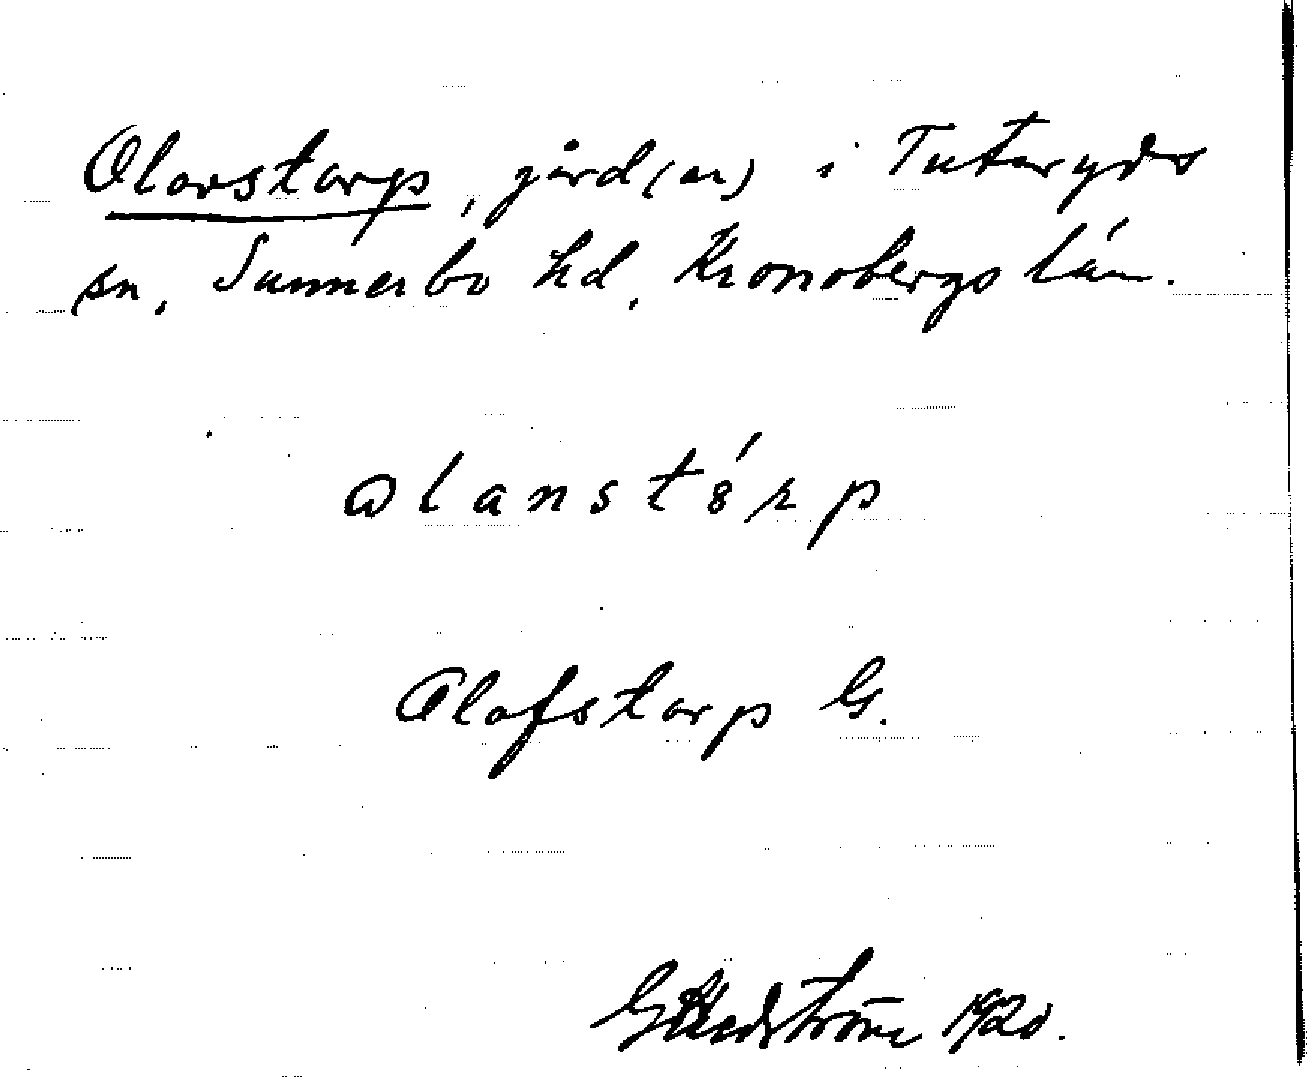 Olovstorp, gård(en) i Tutaryds
sn, Sunnerbo hd, Kronobergs län.
ɷlanstȣ́rp
Olofstorp G.
G Hedström 1920.